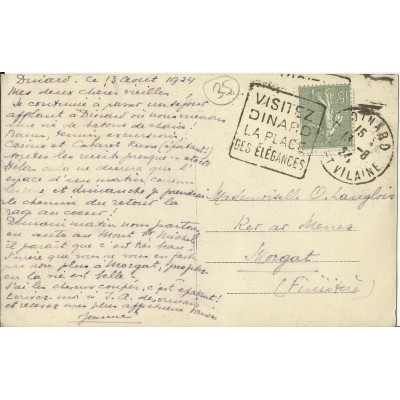 Dinard. Ce 13 Août 1924
Mes deux chères vieilles
Je continue à passer un séjour
affolant à Dinard où nous menons
une vie de bâtons de chaise!
Bains, tennis, excursions,
Casino et Cabaret Russe (épatant)
toutes les nuits presque
Hélas cela ne durera que l'
espace d'un matin comme
les roses et dimanche je prendrai
le chemin du retour la
rage au coeur!
Demain matin nous partons
en auto au Mont St Michel
il paraît que c'est très beau.
J'espère que vous ne vous en faites
pas non plus à Morgat, profitez
en la vie est belle.
J'ai les cheveux coupés, c'est épatant!
Ecrivez moi à
et recevez mes plus affectueux baisers
25
VISITEZ
DINARD
LA PLAGE
DES ÉLÉGANCES
15
DINARD
15
-8
24
ET VILAINE
Mademoiselle O. Langlois
Ker ar Menez
Morgat
(Finistère)